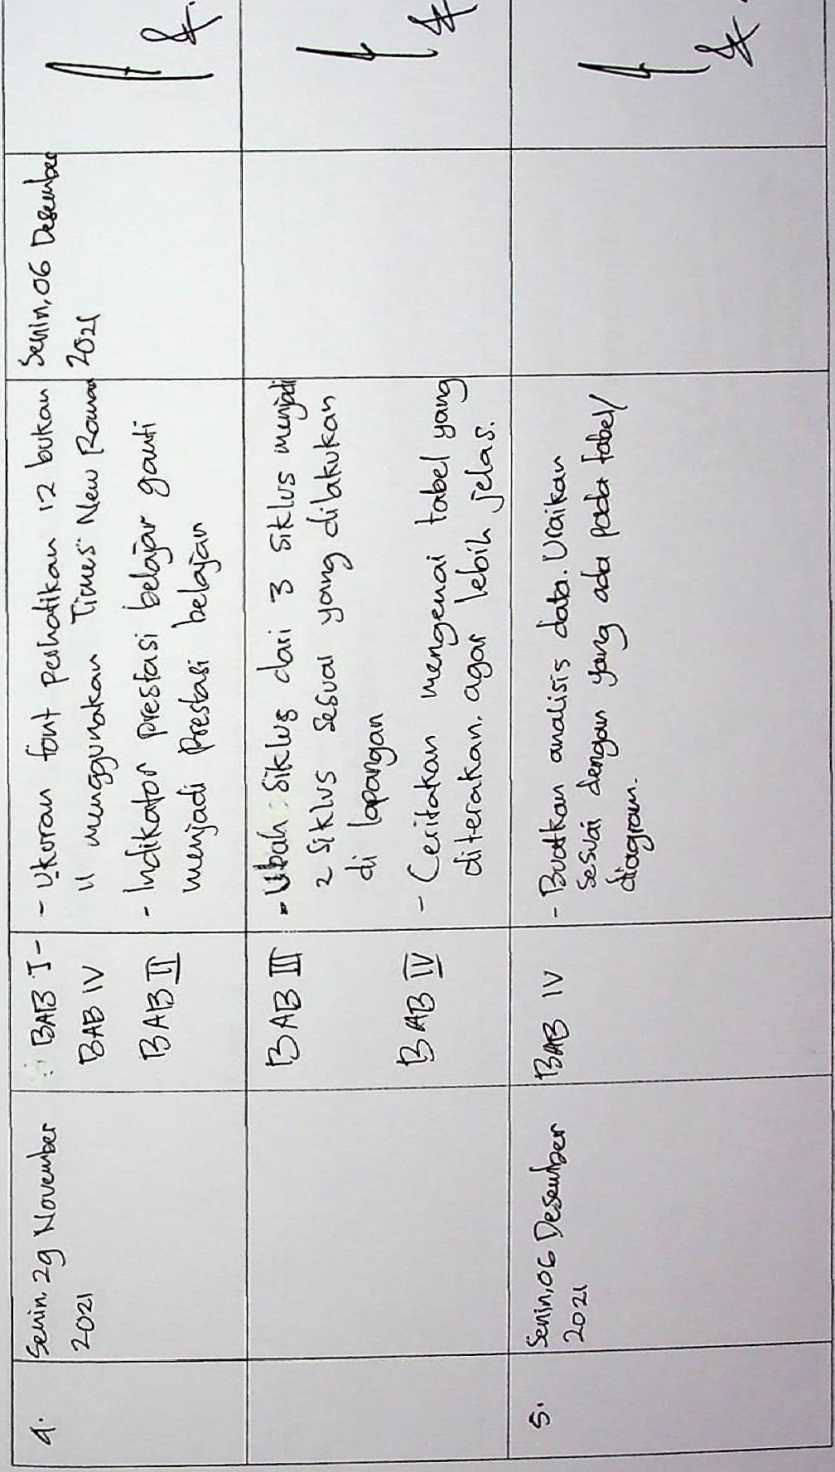 4.
Senin, 29 November
2021
BAB I -
BAB IV
BAB II
- Ukuran font perhatikan 12 bukan
11 menggunakan Times New Roman
- Indikator prestasi belajar ganti
menjadi Prestasi belajar
Senin, 06 Desember
2021
BAB III
- Ubah : Siklus dari 3 siklus menjadi
2 siklus sesuai yang dilakukan
di lapangan
BAB IV
- Ceritakan mengenai tabel yang
diterakan. agar lebih jelas.
5.
Senin, 06 Desember
2021
BAB IV
- Buatkan analisis data. Uraikan
sesuai dengan yang ada pada tabel/
diagram.